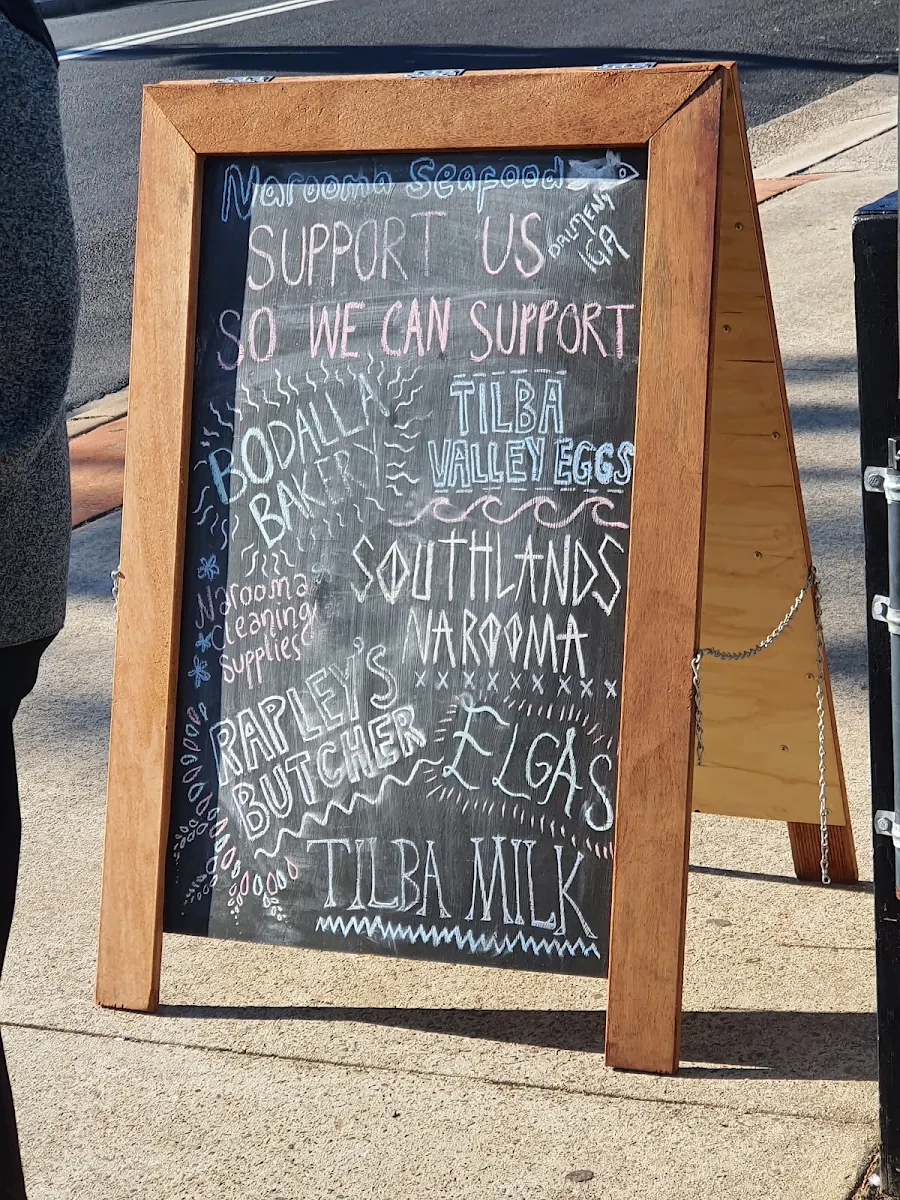 Narooma Seafood
SUPPORT US
DALMENY
IGA
SO WE CAN SUPPORT
BODALLA
BAKERY
TILBA
VALLEY EGGS
SOUTHLANDS
NAROOMA
Narooma
Cleaning
Supplies
RAPLEY'S
BUTCHER
ELGAS
TILBA MILK